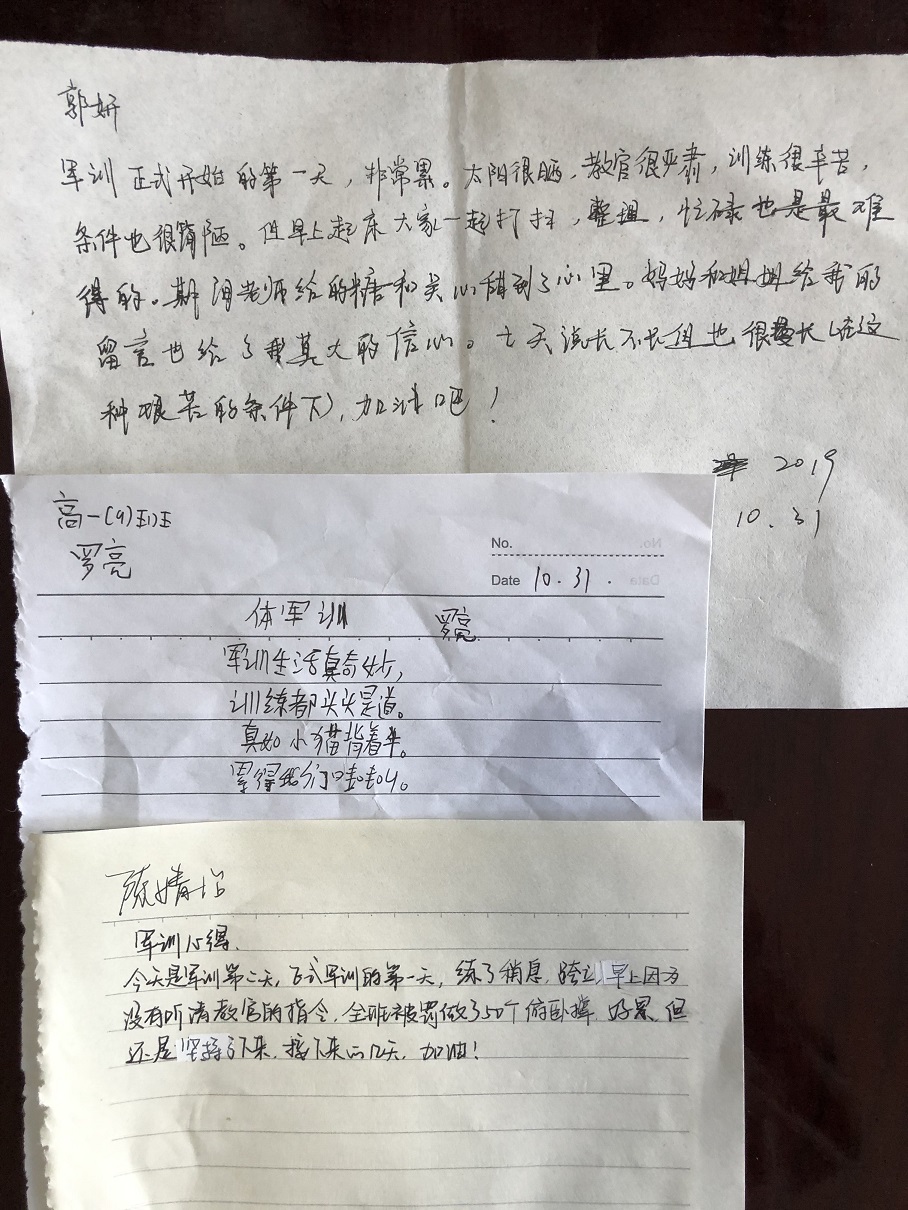 郭妍
军训正式开始的第一天，非常累。太阳很晒，教官很严肃，训练很辛苦，
条件也很简陋。但早上起床大家一起打扫，整理，忙碌也是最难
得的。期间老师给的糖和关心甜到了心里。妈妈和姐姐给我的
留言也给了我莫大的信心。七天说长不长但也很漫长（在这
种艰苦的条件下），加油吧！
2019
10.31
高一(9)班
罗亮
No.
Date 10.31.
体军训 罗亮
军训生活真奇妙，
训练都头头是道。
真如小猫背着手。
累得我们哇哇叫。
陈婧
军训心得.
今天是军训第二天，正式军训的第一天，练了稍息，跨立，早上因为
没有听清教官的指令，全班被罚做了50个俯卧撑，好累，但
还是坚持了下来，接下来的几天，加油！